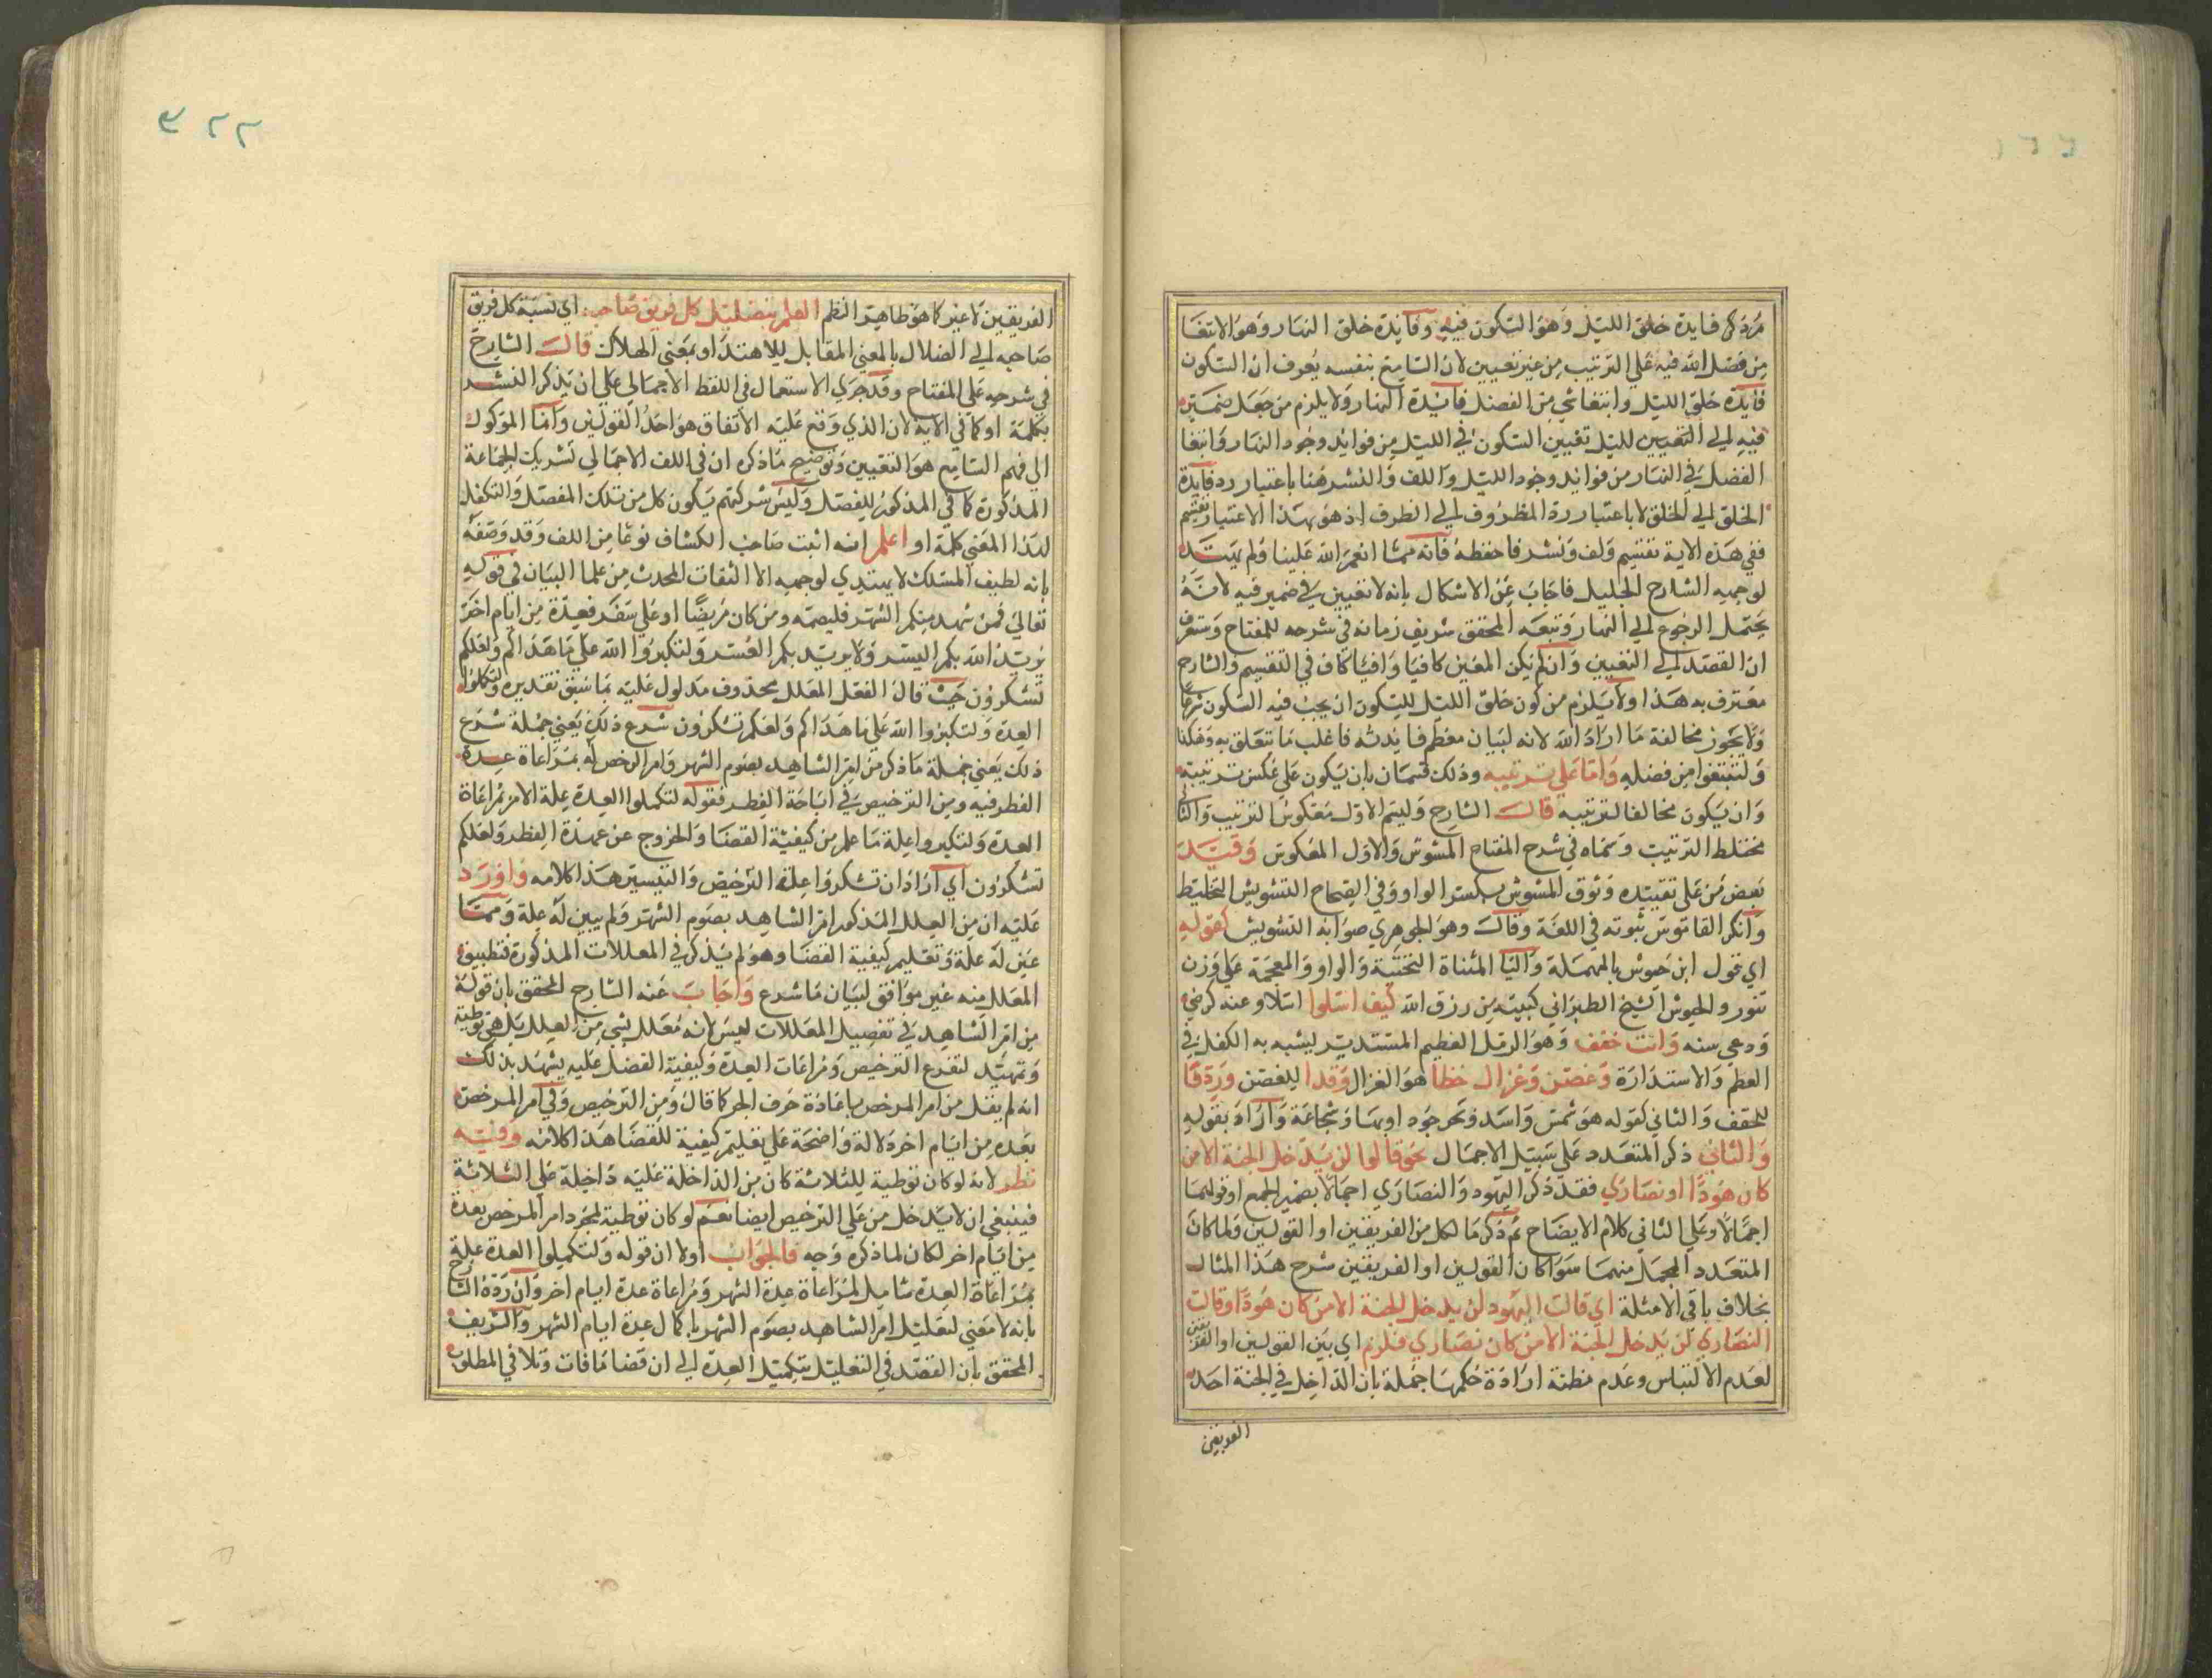 مرذكر فايدة خلق الليل وهو السكون فيه وفايدة خلق النهار وهو الابتغا
من فضل الله فيه على الترتيب من غير تعيين لان السامع بنفسه يعرف ان السكون
فايدة خلق الليل وابتغا شي من الفضل فايدة النهار ولا يلزم من جعل ضميرى
فيه الى التعيين لليل تعيين السكون في الليل من فوائد وجود النهار وابتغا
الفضل في النهار من فوائد وجود الليل واللف والنشر هنا باعتبار رد فايدة
الخلق الى الخلق لا باعتبار رد المظروف الى الظرف اذ هو بهذا الاعتبار تقسيم
ففي هذه الاية تقسيم ولف ونشر فاحفظه فانه مما انعم الله علينا ولم يهتد
لوجهه الشارح الجليل فاجاب عن الاشكال بانه لا تعيين في ضمير فيه لانه
يحتمل الرجوع الى النهار وتبعه المحقق شريف زمانه في شرحه للمفتاح وستعرف
ان القصد الى التعيين وان لم يكن المعين كافيا وافيا كاف في التقسيم والشارح
معترف به هذا ولا يلزم من كون خلق الليل للسكون ان يجب فيه السكون شرعا
ولا يجوز مخالفة ما اراد الله لانه لبيان معظم فايدته فاغلب ما تتعلق به وهكذا
ولتبتغوا من فضله واما على ترتيبه وذلك قسمان بان يكون على عكس ترتيبه
وان يكون مخالفا لترتيبه قال الشارح وليتم الاول معكوس الترتيب والثاني
مختلط الترتيب وسماه في شرح المفتاح المشوش والاول المعكوس وقيل
بعض من على تقييده وثوق المشوش بكسر الواو وفي الصحاح التشويش التخليط
وانكر القاموس ثبوته في اللغة وقال وهو الجوهري صوابه التشويش كقوله
اي قول ابن حيوش بالمهملة واليا المثناة التحتية والواو والمعجمة على وزن
تنور والحيوش الشيخ الطبراني كبيته بن رزق الله كيف اسلوا اسلاو عنه كرضي
ودعي سنه وانت حقف وهو الرمل العظيم المستدير ليشبه به الكفل في
العظم والاستدارة وغصن وغزال خطا هو الغزال وقدا للغصن وردفا
للحقف والثاني كقوله هو شمس واسد وبحر جود اوبها وشجاعة واراد بقوله
والثاني ذكر المتعدد على سبيل الاجمال نحو قالوا لن يدخل الجنة الا من
كان هودا او نصارى فقد ذكر اليهود والنصارى اجمالا بضمير الجمع او قولهما
اجمالا وعلى الثاني كلام الايضاح ثم ذكر ما لكل من الفريقين او القولين ولما كان
المتعدد المجمل منهما سوا كان القولين او الفريقين شرح هذا المثال
بخلاف باقي الامثلة اي قالت اليهود لن يدخل الجنة الا من كان هودا وقالت
النصارى لن يدخل الجنة الا من كان نصارى فلزم اي بين القولين او الفريقين
لعدم الالتباس وعدم مظنة ارادة حكمها جملة بان الداخل في الجنة احد
الفريقين
٣٢٢
الفريقين لا غير كا هو ظاهر النظم العلم بتضليل كل فريق صاحبه اي نسبة كل فريق
صاحبه الى الضلال بالمعنى المقابل للاهتدا او بمعنى الهلاك قال الشارح
في شرحه على المفتاح وقد جرى الاستعمال في اللفظ الاجمالي على ان يذكر النشر
بكلمة او كما في الاية لان الذي وقع عليه الاتفاق هو احد القولين وانما الموكول
الى فهم السامع هو التعيين وتوضيح ماذكره ان في اللف الاجمالي تشريك الجماعة
المذكورة كا في المذكور للفصل وليس شركتهم بكون كل من تلك المفصل والتكفل
لهذا المعنى كلمة او اعلم انه اثبت صاحب الكشاف نوعا من اللف وقد وصفه
بانه لطيف المسلك لا يهتدي لوجهه الا الثقات المحدث من علما البيان في قوله
تعالى فمن شهد منكم الشهر فليصمه ومن كان مريضا او على سفر فعدة من ايام اخر
يريد الله بكم اليسر ولا يريد بكم العسر ولتكبروا الله على ما هداكم ولعلكم
تشكرون حيث قال الفعل المعلل محذوف مدلول عليه بما سبق تقديره ولتكملوا
العدة ولتكبروا الله على ما هداكم ولعلكم تشكرون شرع ذلك يعني جملة شرع
ذلك يعني جملة ماذكر من امر الشاهد بصوم الشهر وامر المرخص له بمراعاة عدة
الفطر فيه ومن الترخيص في اباحة الفطر فقوله لتكملوا العدة علة الامر بمراعاة
العدة ولتكبروا علة ما علم من كيفية القضا والخروج عن عهدة الفطر ولعلكم
تشكرون اي اراد ان تشكروا علة الترخيص والتيسير هذا كلامه واورد
عليه ان من العلل المذكور امر الشاهد بصوم الشهر ولم يبين له علة ومما
عين له علة وتعليم كيفية القضا وهو لم يذكر في المعللات المذكورة فتطبيق
المعلل منه غير موافق لبيان ما شرع واجاب عنه الشارح المحقق بان قوله
من امر الشاهد في تفصيل المعللات ليس لانه معلل بشي من العلل بل هو توطية
وتمهيد لتفرع الترخيص ومراعات العدة وكيفية القضا عليه يشهد بذلك
انه لم يقل من امر المرخص باعادة حرف الجر كا قال ومن الترخيص وفي امر المرخص
بعدة من ايام اخر دلالة واضحة على تعليم كيفية للقضا هذا كلامه وفيه
نظر لانه لو كان توطية للثلاثة كان من الداخلة عليه داخلة على الثلاثة
فينبغي ان لا يدخل من على الترخيص ايضا نعم لو كان توطية لمجرد امر المرخص بعدة
من ايام اخر لكان لما ذكره وجه فالجواب اولا ان قوله ولتكملوا العدة علة
بمراعاة العدة شامل لمراعاة عدة الشهر ومراعاة عدة ايام اخر وان رده الشارح
بانه لا معنى لتعليل امر الشاهد بصوم الشهر باكمال عدة ايام الشهر والشريف
المحقق بان القصد في التعليل بتكميل العدة الى ان قضا مافات وتلافي المطلوب